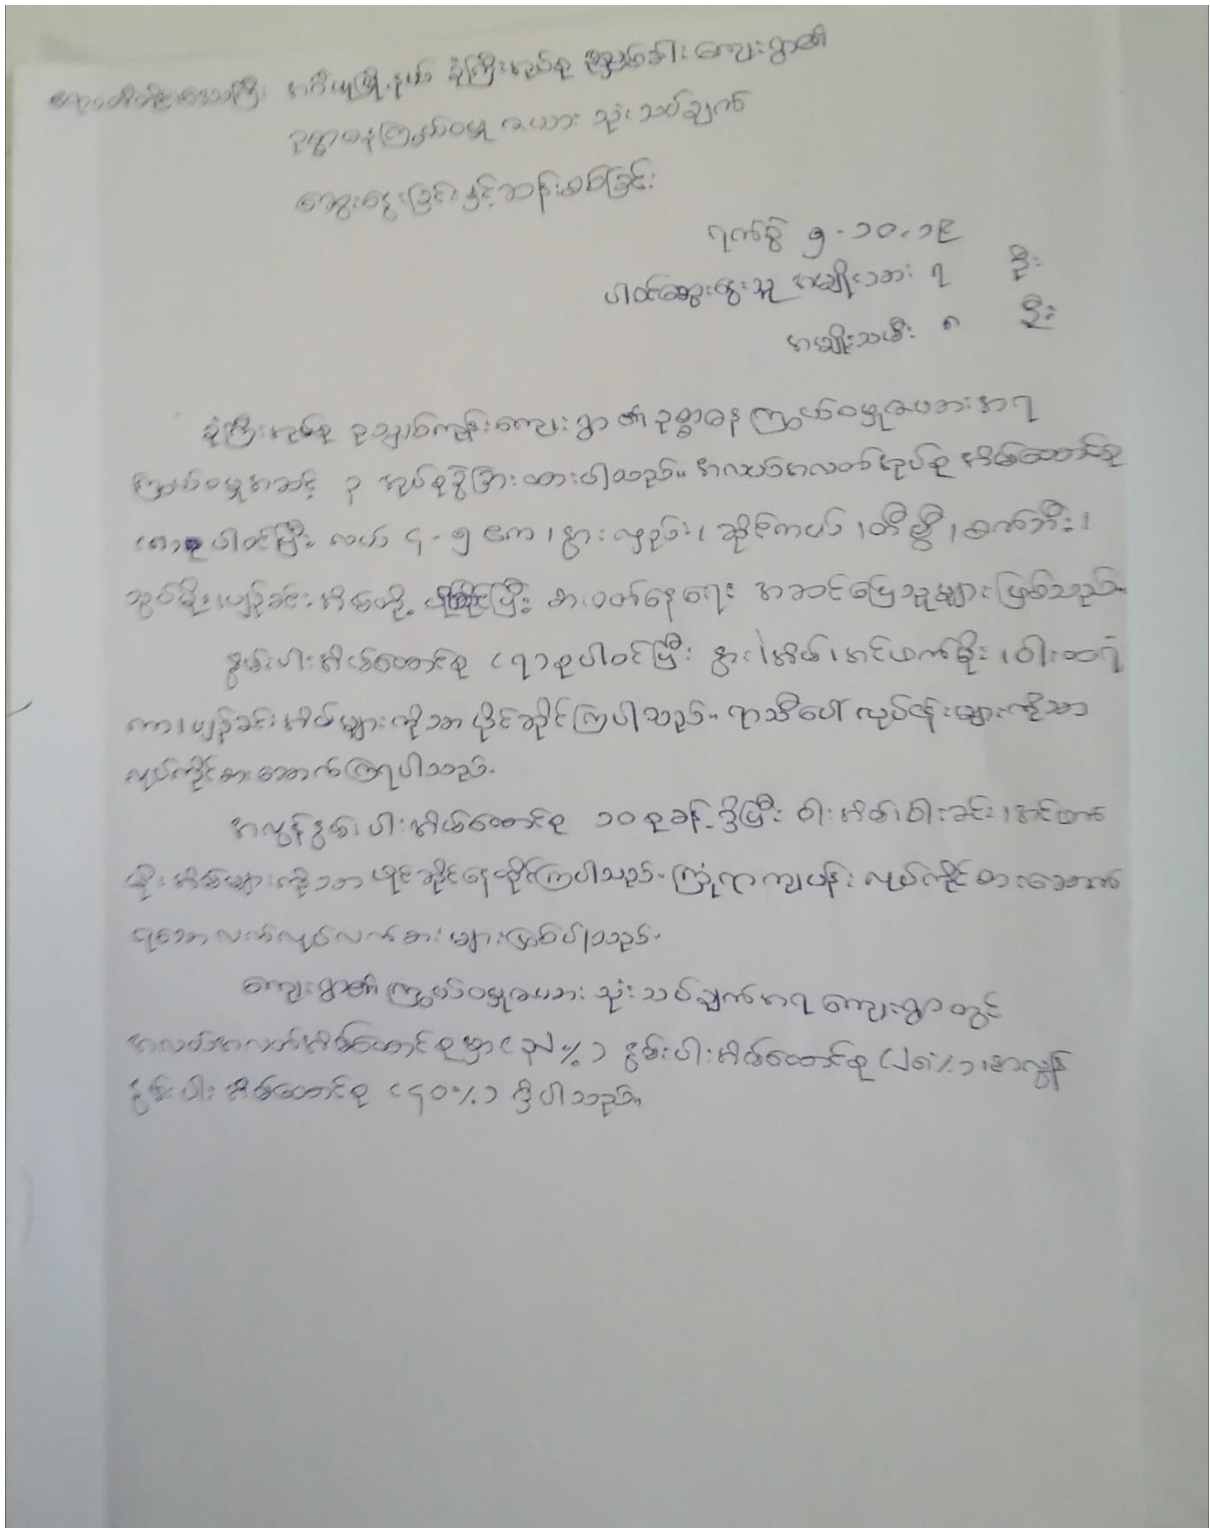 ဧရာဝတီတိုင်းဒေသကြီး အင်္ဂပူမြို့နယ် ခုံကြီးအုပ်စု ကျေးရွာ၏
ဥစ္စာဓနကြွယ်ဝမှု ဇယား သုံးသပ်ချက်
ဆွေးနွေးခြင်းနှင့်ဆန်းစစ်ခြင်း
ရက်စွဲ ၅-၁၀-၁၉
ပါဝင်ဆွေးနွေးသူ အမျိုးသား ၇ ဦး
အမျိုးသမီး ၈ ဦး
ခုံကြီးအုပ်စု ကျေးရွာ၏ ဥစ္စာဓနကြွယ်ဝမှုဇယားအရ
ကြွယ်ဝမှုအဆင့် ၃ အုပ်စုခွဲခြားထားပါသည်။ အလယ်အလတ်အုပ်စု အိမ်ထောင်စု
(၈)စုပါဝင်ပြီး လယ် ၄-၅ ဧက၊ နွား၊ လှည်း၊ ဆိုင်ကယ်၊ တီဗွီ၊ စက်ဘီး၊
သွပ်မိုး၊ ပျဉ်ခင်းအိမ်တို့ ပိုင်ဆိုင်ပြီး စားဝတ်နေရေး အဆင်ပြေသူများဖြစ်သည်။
နွမ်းပါးအိမ်ထောင်စု (၇)စုပါဝင်ပြီး နွား၊ အိမ်၊ အင်ဖက်မိုး၊ ဝါးထရံ
ကာ၊ ပျဉ်ခင်းအိမ်များကိုသာ ပိုင်ဆိုင်ကြပါသည်။ ရာသီပေါ်လုပ်ငန်းများကိုသာ
လုပ်ကိုင်စားသောက်ကြရပါသည်။
အလွန်နွမ်းပါးအိမ်ထောင်စု ၁၀ စုခန့်ရှိပြီး ဝါးအိမ်၊ ဝါးခင်း၊ အင်ဖက်
မိုးအိမ်များကိုသာ ပိုင်ဆိုင်နေထိုင်ကြပါသည်။ ကြုံရာကျပန်း လုပ်ကိုင်စားသောက်
ရသော လက်လုပ်လက်စားများဖြစ်ပါသည်။
ကျေးရွာ၏ ကြွယ်ဝမှုဇယား သုံးသပ်ချက်အရ ကျေးရွာတွင်
အလယ်အလတ်အိမ်ထောင်စုမှာ (၃၂%) နွမ်းပါးအိမ်ထောင်စု (၂၈%)၊ အလွန်
နွမ်းပါးအိမ်ထောင်စု (၄၀%) ရှိပါသည်။